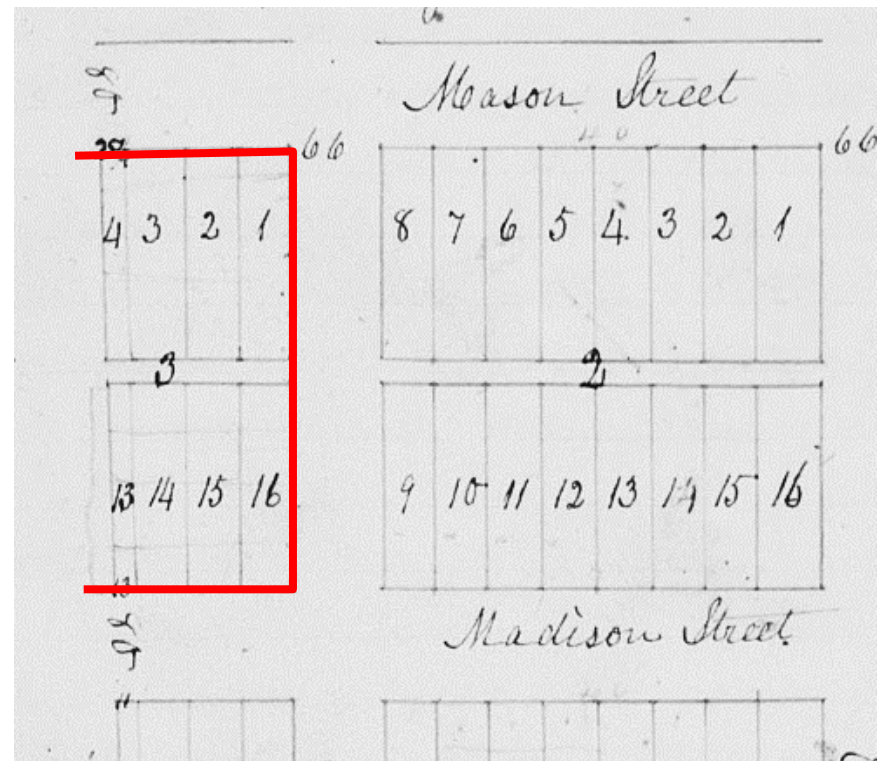 Mason Street
66 66
4 3 2 1 8 7 6 5 4. 3 2 1
3 2
13 14 15 16 9 10 11 12 13 14 15 16
13
Madison Street
11